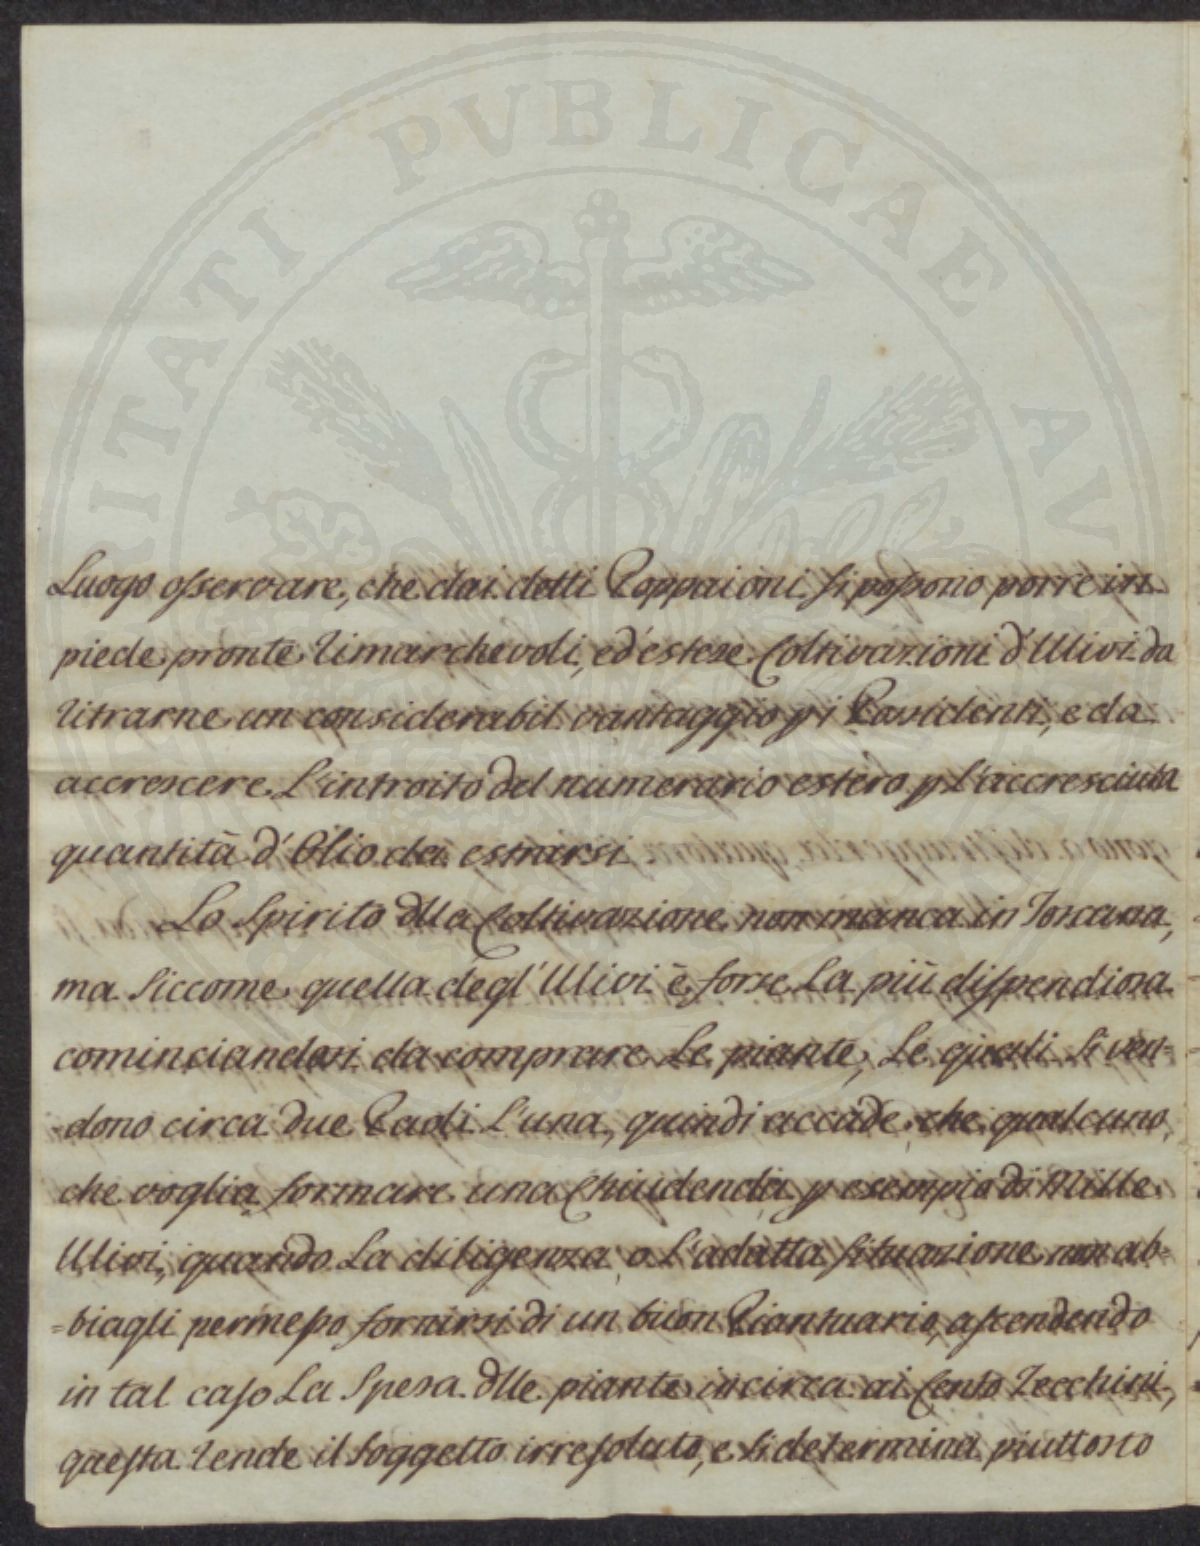 PROSPERITATI PVBLICAE AV
Luogo osservare, che dai detti Poppaioni si possono porre in
piede pronte rimarchevoli, ed'estese Coltivazioni d'Ulivi da
ritrarne un considerabil vantaggio p i Possidenti, e da
accrescere L'introito del numerario estero p L'accresciuta
quantità d'Olio da estrarsi
Lo Spirito dlla Coltivazione non manca in Toscana,
ma siccome quella degl'Ulivi è forse La più dispendiosa
cominciandosi da comprare Le piante, Le quali si ven-
-dono circa due Paoli L'una, quindi accade, che qualcuno,
che voglia formare una Chiudenda p esempio di Mille
Ulivi, quando La diligenza, o L'adatta situazione non ab-
=biagli permesso fornirsi di un buon Piantuario, ascendendo
in tal caso La Spesa dlle piante incirca ai Cento Zecchini,
questa rende il soggetto irresoluto, e si determina piuttosto